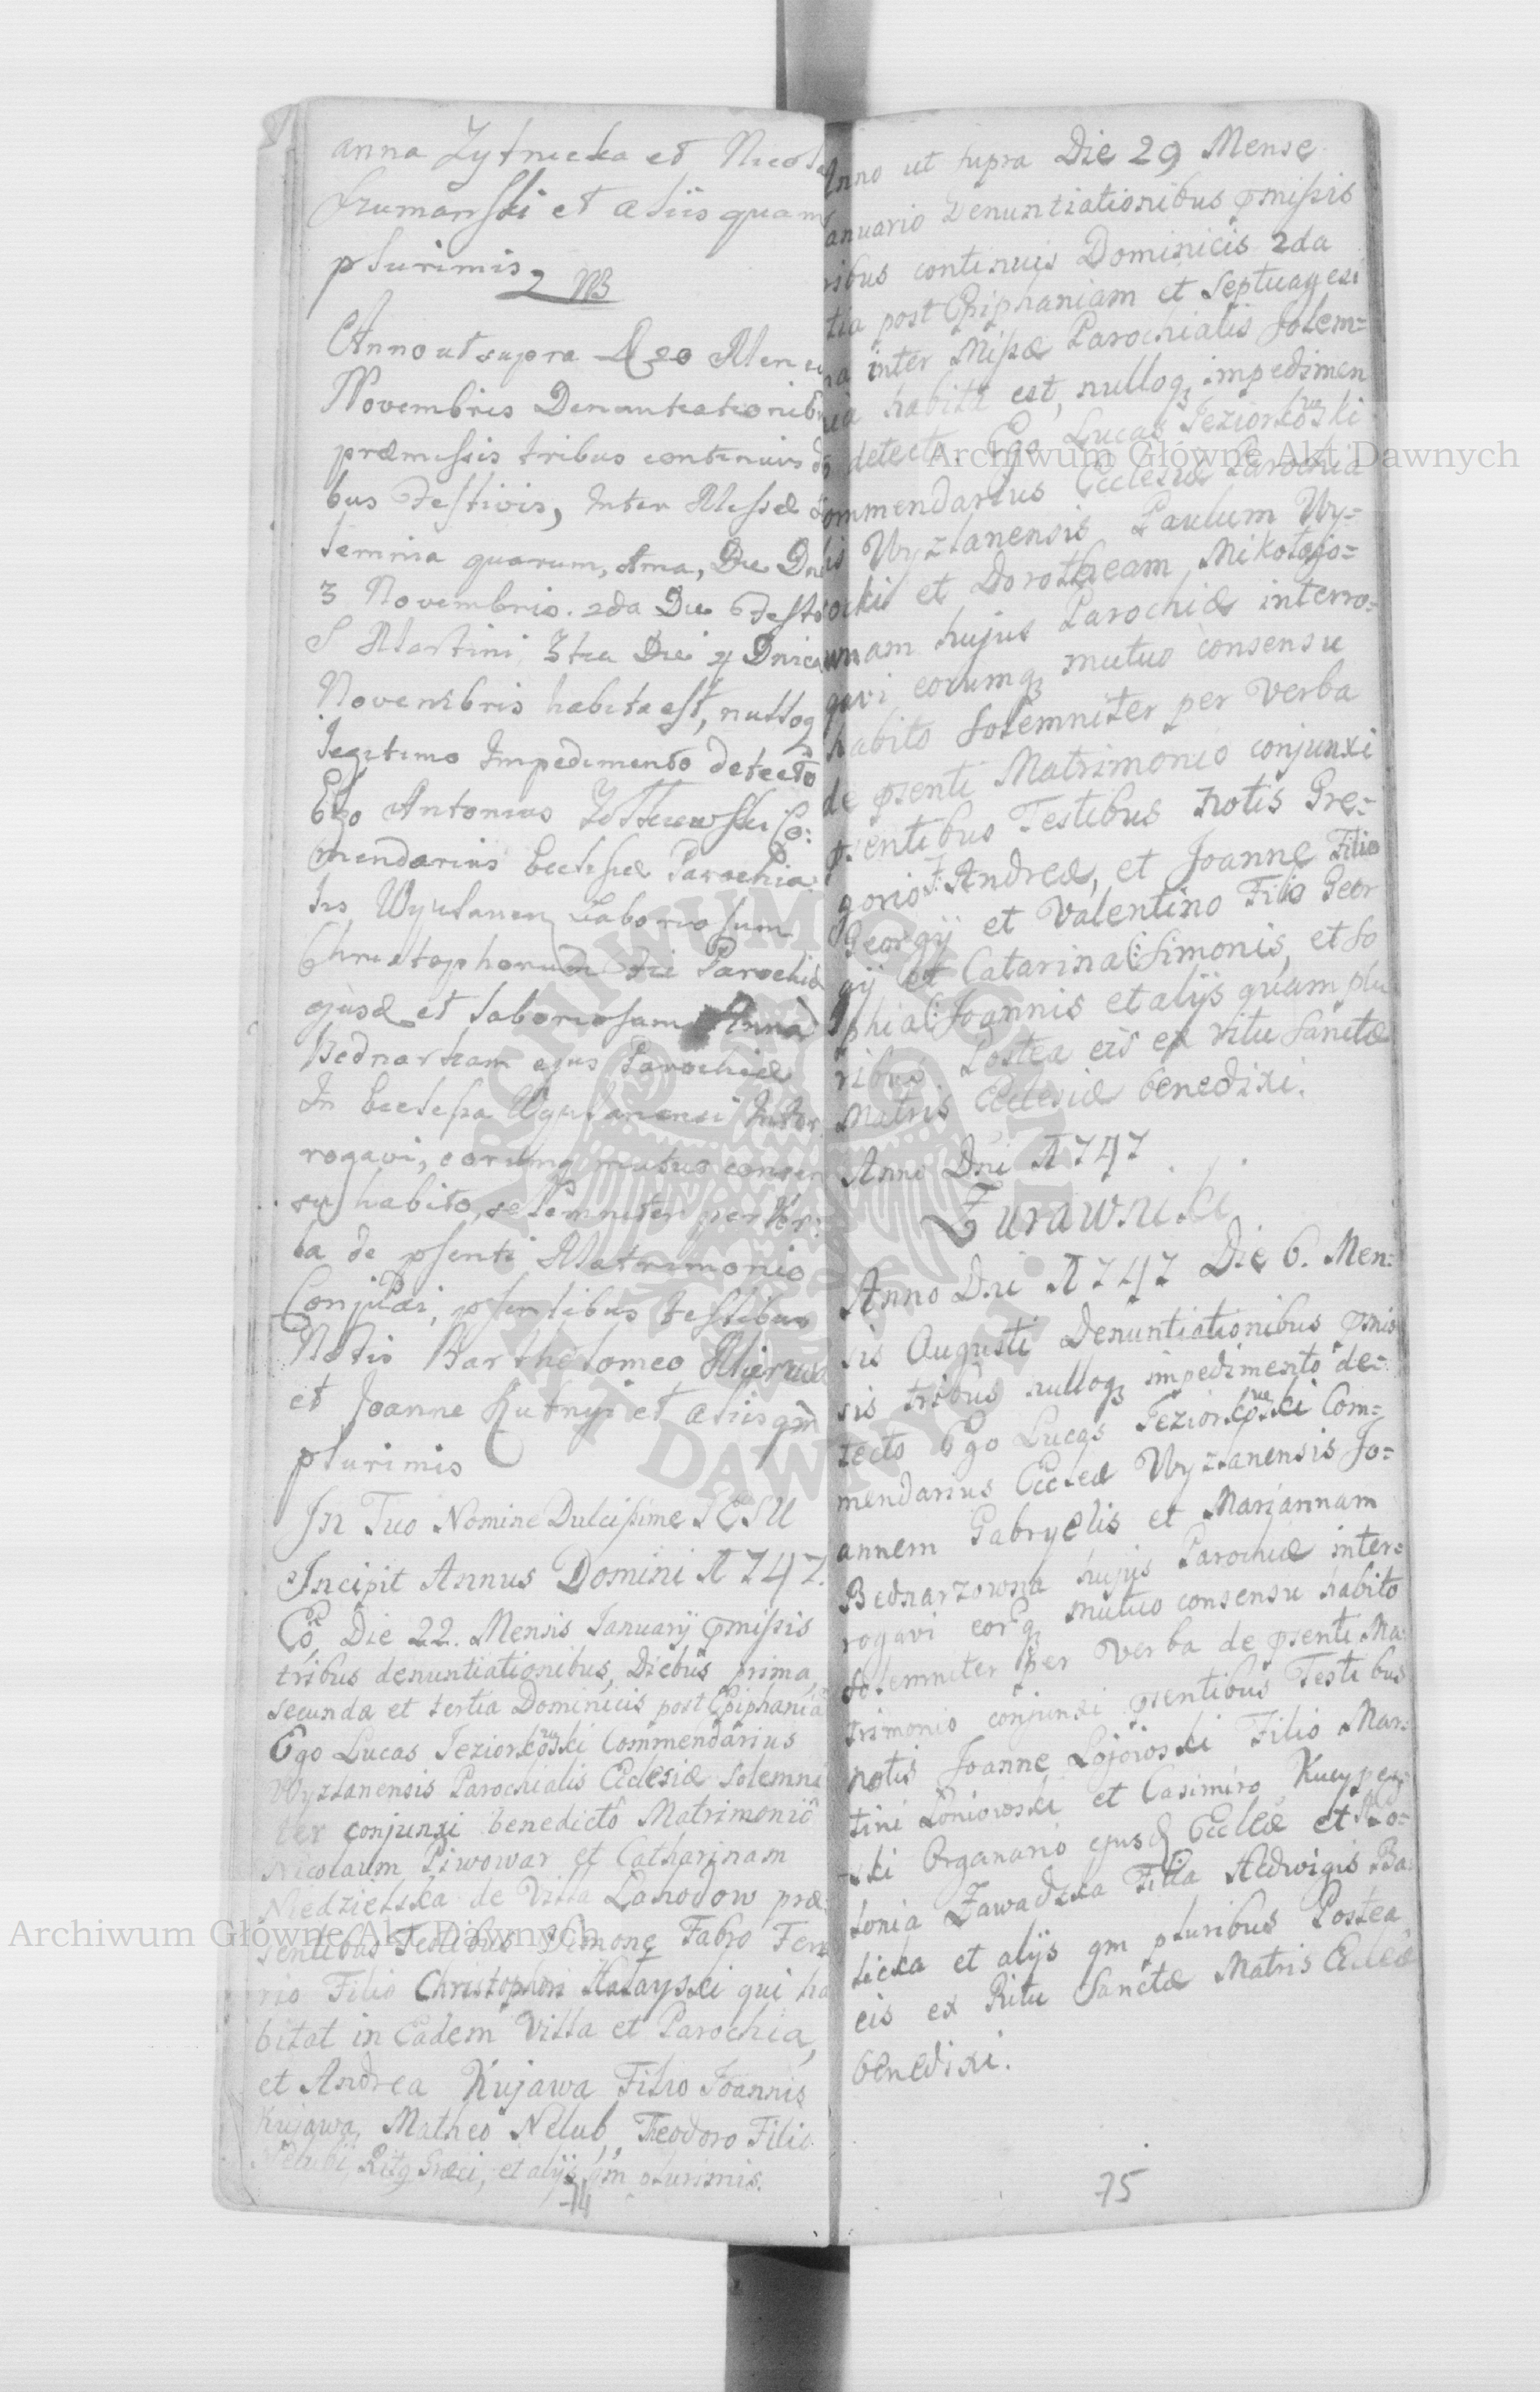 anna Zytnicka et Nicol
Szumanski et aliis quam
plurimis
2 NB
Anno ut supra D 20 Men
Novembris Denuntiationib
præmissis tribus continuis
bus Festivis, Inter Missæ
lemnia quarum, Ima, Die Dni
3 Novembris. 2da Die Festo
S Martini 3tia Die Dnica
Novembris habita est, nulloq
legitimo Impedimento detecto
Ego Antonius Co:
mendarius Ecclesiæ Parochia
lis Wyzlanen Laboriosum
Christophorum Parochiæ
et laboriosam Anna
Bednarkam ejus Parochiæ
In Ecclesia Wyzlanensi Inter
rogavi, eorumq mutuo consen
su habito, solemniter per Ver:
ba de psenti Matrimonio
Conjunxi, psentibus testibus
Notis Bartholomeo
et Joanne Kutnyi et aliis qm
plurimis
In Tuo Nomine Dulcissime IESU
Incipit Annus Domini 1747.
Die 22. Mensis Ianuarij pmissis
tribus denuntiationibus, Diebus prima,
secunda et tertia Dominicis post Epiphania
Ego Lucas Ieziorkowski Commendarius
Wyzlanensis Parochialis Ecclesiæ solemni
ter conjunxi benedicto Matrimonio
Nicolaum Piwowar et Catharinam
Niedzielska de Villa Lahodow præ
sentibus Testibus Simone Fabro Ferr
rio Filio Christophori Halayski qui ha
bitat in Eadem Villa et Parochia,
et Andrea Kujawa Filio Joannis
Kujawa, Matheo Nelub, Theodoro Filio
Nelubij Ritq Græci, et alijs qm plurimis.
74
Anno ut supra Die 29 Mense
anuario Denuntiationibus pmissis
ribus continuis Dominicis 2da
tia post Epiphaniam et Septuagesi
na inter Missæ Parochialis Solem=
nia habita est, nulloq impedimen
to detecto Ego Lucas Ieziorkowski
ommendarius Ecclesiæ Parochia
lis Wyzlanensis Paulum Wy=
ocki et Dorotheam Mikołajo=
wnam hujus Parochiæ interro=
gavi eorumq mutuo consensu
habito Solemniter per verba
de psenti Matrimonio conjunxi
psentibus Testibus notis Gre=
gorio F: Andreæ, et Joanne Filio
Georgij et Valentino Filio Geor
gij et Catarina Simonis, et So
phia Joannis et alijs quam plu
ribus. Postea eis ex ritu Sanctæ
Matris Ecclesiæ benedixi.
Anno Dni 1747
Zurawniki
Anno Dni 1747 Die 6. Men=
sis Augusti Denuntiationibus pmis
sis tribus nulloq impedimento de=
tecto Ego Lucas Ieziorkowski Com=
mendarius Eccleæ Wyzlanensis Jo=
annem Gabryelis et Mariannam
Bednarzowna hujus Parochiæ inter=
rogavi eorq mutuo consensu habito
solemniter per verba de psenti Ma
trimonio conjunxi psentibus Testibus
notis Joanne Filio Mar=
tini et Casimiro
ski Organario ejusd Eccleæ et
tonia Zawadzka Filia Hedwigis Ba
licka et alijs qm pluribus Postea
eis ex Ritu Sanctæ Matris Eccleæ
benedixi.
75
Archiwum Główne Akt Dawnych
Archiwum Główne Akt Dawnych
ARCHIWUM GŁÓWNE AKT DAWNYCH